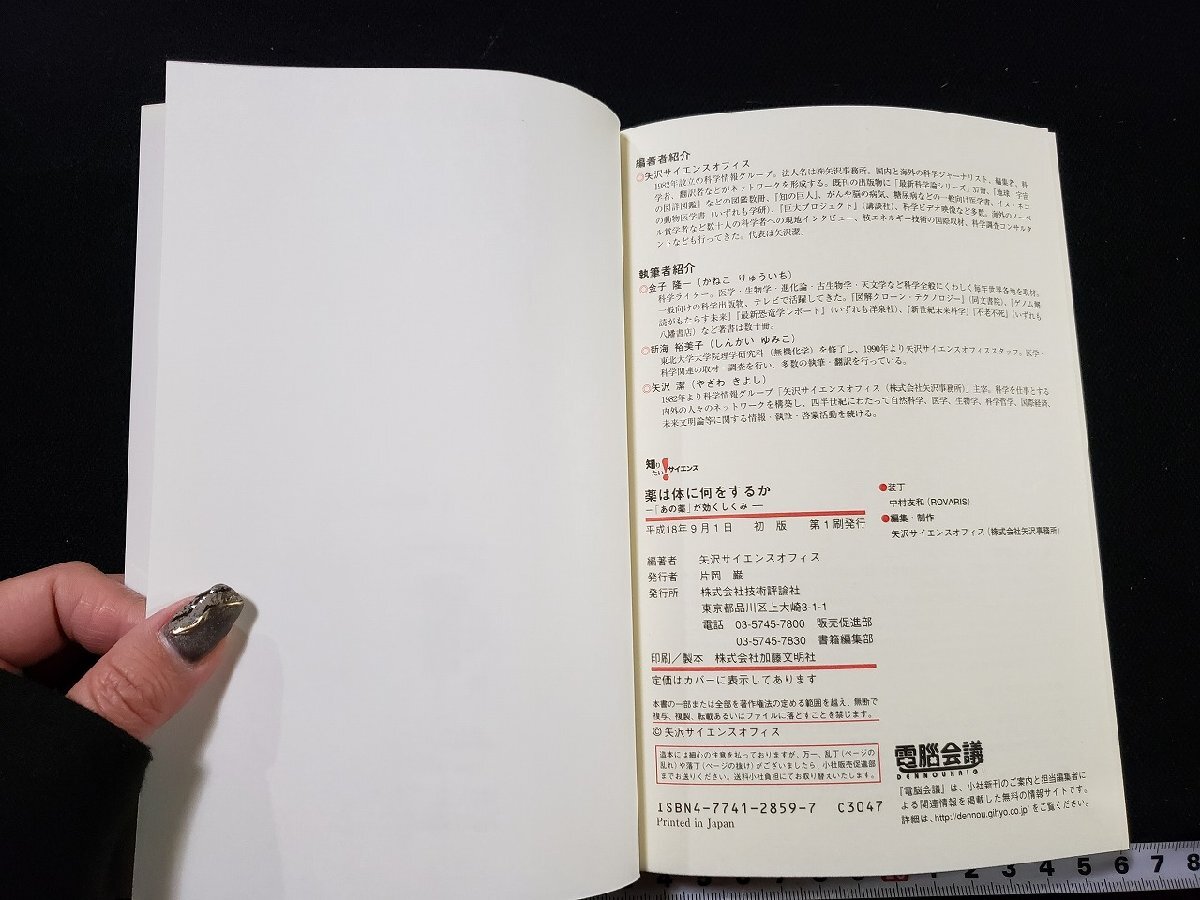 編著者紹介
◎矢沢サイエンスオフィス
1982年設立の科学情報グループ。法人名は㈱矢沢事務所。国内と海外の科学ジャーナリスト、編集者、科
学者、翻訳者などがネットワークを形成する。既刊の出版物に『最新科学論シリーズ』37冊、『地球 宇宙
の図詳図鑑』などの図鑑数冊、『知の巨人』、がんや脳の病気、糖尿病などの一般向け医学書、イヌ・ネコ
の動物医学書（いずれも学研）、『巨大プロジェクト』（講談社）、科学ビデオ映像など多数。海外のノーベ
ル賞学者など数十人の科学者への現地インタビュー、核エネルギー技術の国際取材、科学調査コンサルタ
ントなども行ってきた。代表は矢沢潔。
執筆者紹介
◎金子 隆一（かねこ りゅういち）
科学ライター。医学・生物学・進化論・古生物学・天文学など科学全般にくわしく毎年世界各地を取材。
一般向けの科学出版物、テレビで活躍してきた。『図解クローン・テクノロジー』（同文書院）、『ゲノム解
読がもたらす未来』『最新恐竜学レポート』（いずれも洋泉社）、『新世紀未来科学』『不老不死』（いずれも
八幡書店）など著書は数十冊。
◎新海 裕美子（しんかい ゆみこ）
東北大学大学院理学研究科（無機化学）を修了し、1990年より矢沢サイエンスオフィススタッフ。医学・
科学関連の取材・調査を行い、多数の執筆・翻訳を行っている。
◎矢沢 潔（やざわ きよし）
1982年より科学情報グループ「矢沢サイエンスオフィス（株式会社矢沢事務所）」主宰。科学を仕事とする
内外の人々のネットワークを構築し、四半世紀にわたって自然科学、医学、生物学、科学哲学、国際経済、
未来文明論等に関する情報・執筆・啓蒙活動を続ける。
知りたい！サイエンス
薬は体に何をするか
―「あの薬」が効くしくみ―
平成18年9月1日 初 版 第1刷発行
編著者 矢沢サイエンスオフィス
発行者 片岡 巖
発行所 株式会社技術評論社
東京都品川区上大崎3-1-1
電話 03-5745-7800 販売促進部
03-5745-7830 書籍編集部
印刷／製本 株式会社加藤文明社
定価はカバーに表示してあります
本書の一部または全部を著作権法の定める範囲を越え、無断で
複写、複製、転載あるいはファイルに落とすことを禁じます。
©矢沢サイエンスオフィス
造本には細心の注意を払っておりますが、万一、乱丁（ページの
乱れ）や落丁（ページの抜け）がございましたら、小社販売促進部
までお送りください。送料小社負担にてお取り替えいたします。
ISBN4-7741-2859-7 C3047
Printed in Japan
●装丁
中村友和（ROVARIS）
●編集・制作
矢沢サイエンスオフィス（株式会社矢沢事務所）
電脳会議
DENNOUKAIGI
『電脳会議』は、小社新刊のご案内と担当編集者に
よる関連情報を掲載した無料の情報サイトです。
詳細は、http://dennou.gihyo.co.jp/ をご覧ください。
1 2 3 4 5 6 7 8